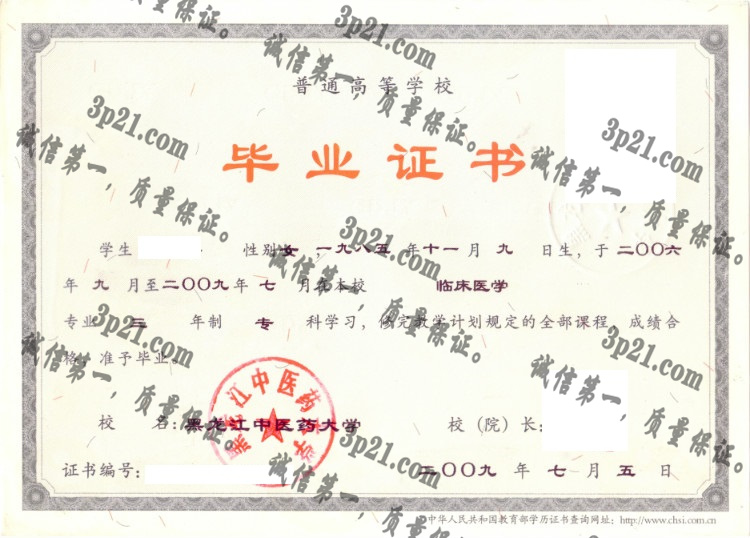 普通高等学校
毕业证书
学生 性别 女，一九八五年十一月九日生，于二〇〇六
年九月至二〇〇九年七月在本校 临床医学
专业 三 年制 专 科学习，修完教学计划规定的全部课程，成绩合
格，准予毕业。
校 名：黑龙江中医药大学 校（院）长：
证书编号： 二〇〇九年七月五日
中华人民共和国教育部学历证书查询网址：http://www.chsi.com.cn
黑龙江中医药大学
3p21.com
诚信第一，质量保证。
3p21.com
诚信第一，质量保证。
3p21.com
诚信第一，质量保证。
3p21.com
诚信第一，质量保证。
3p21.com
诚信第一，质量保证。
3p21.com
诚信第一，质量保证。
3p21.com
诚信第一，质量保证。
质量保证。